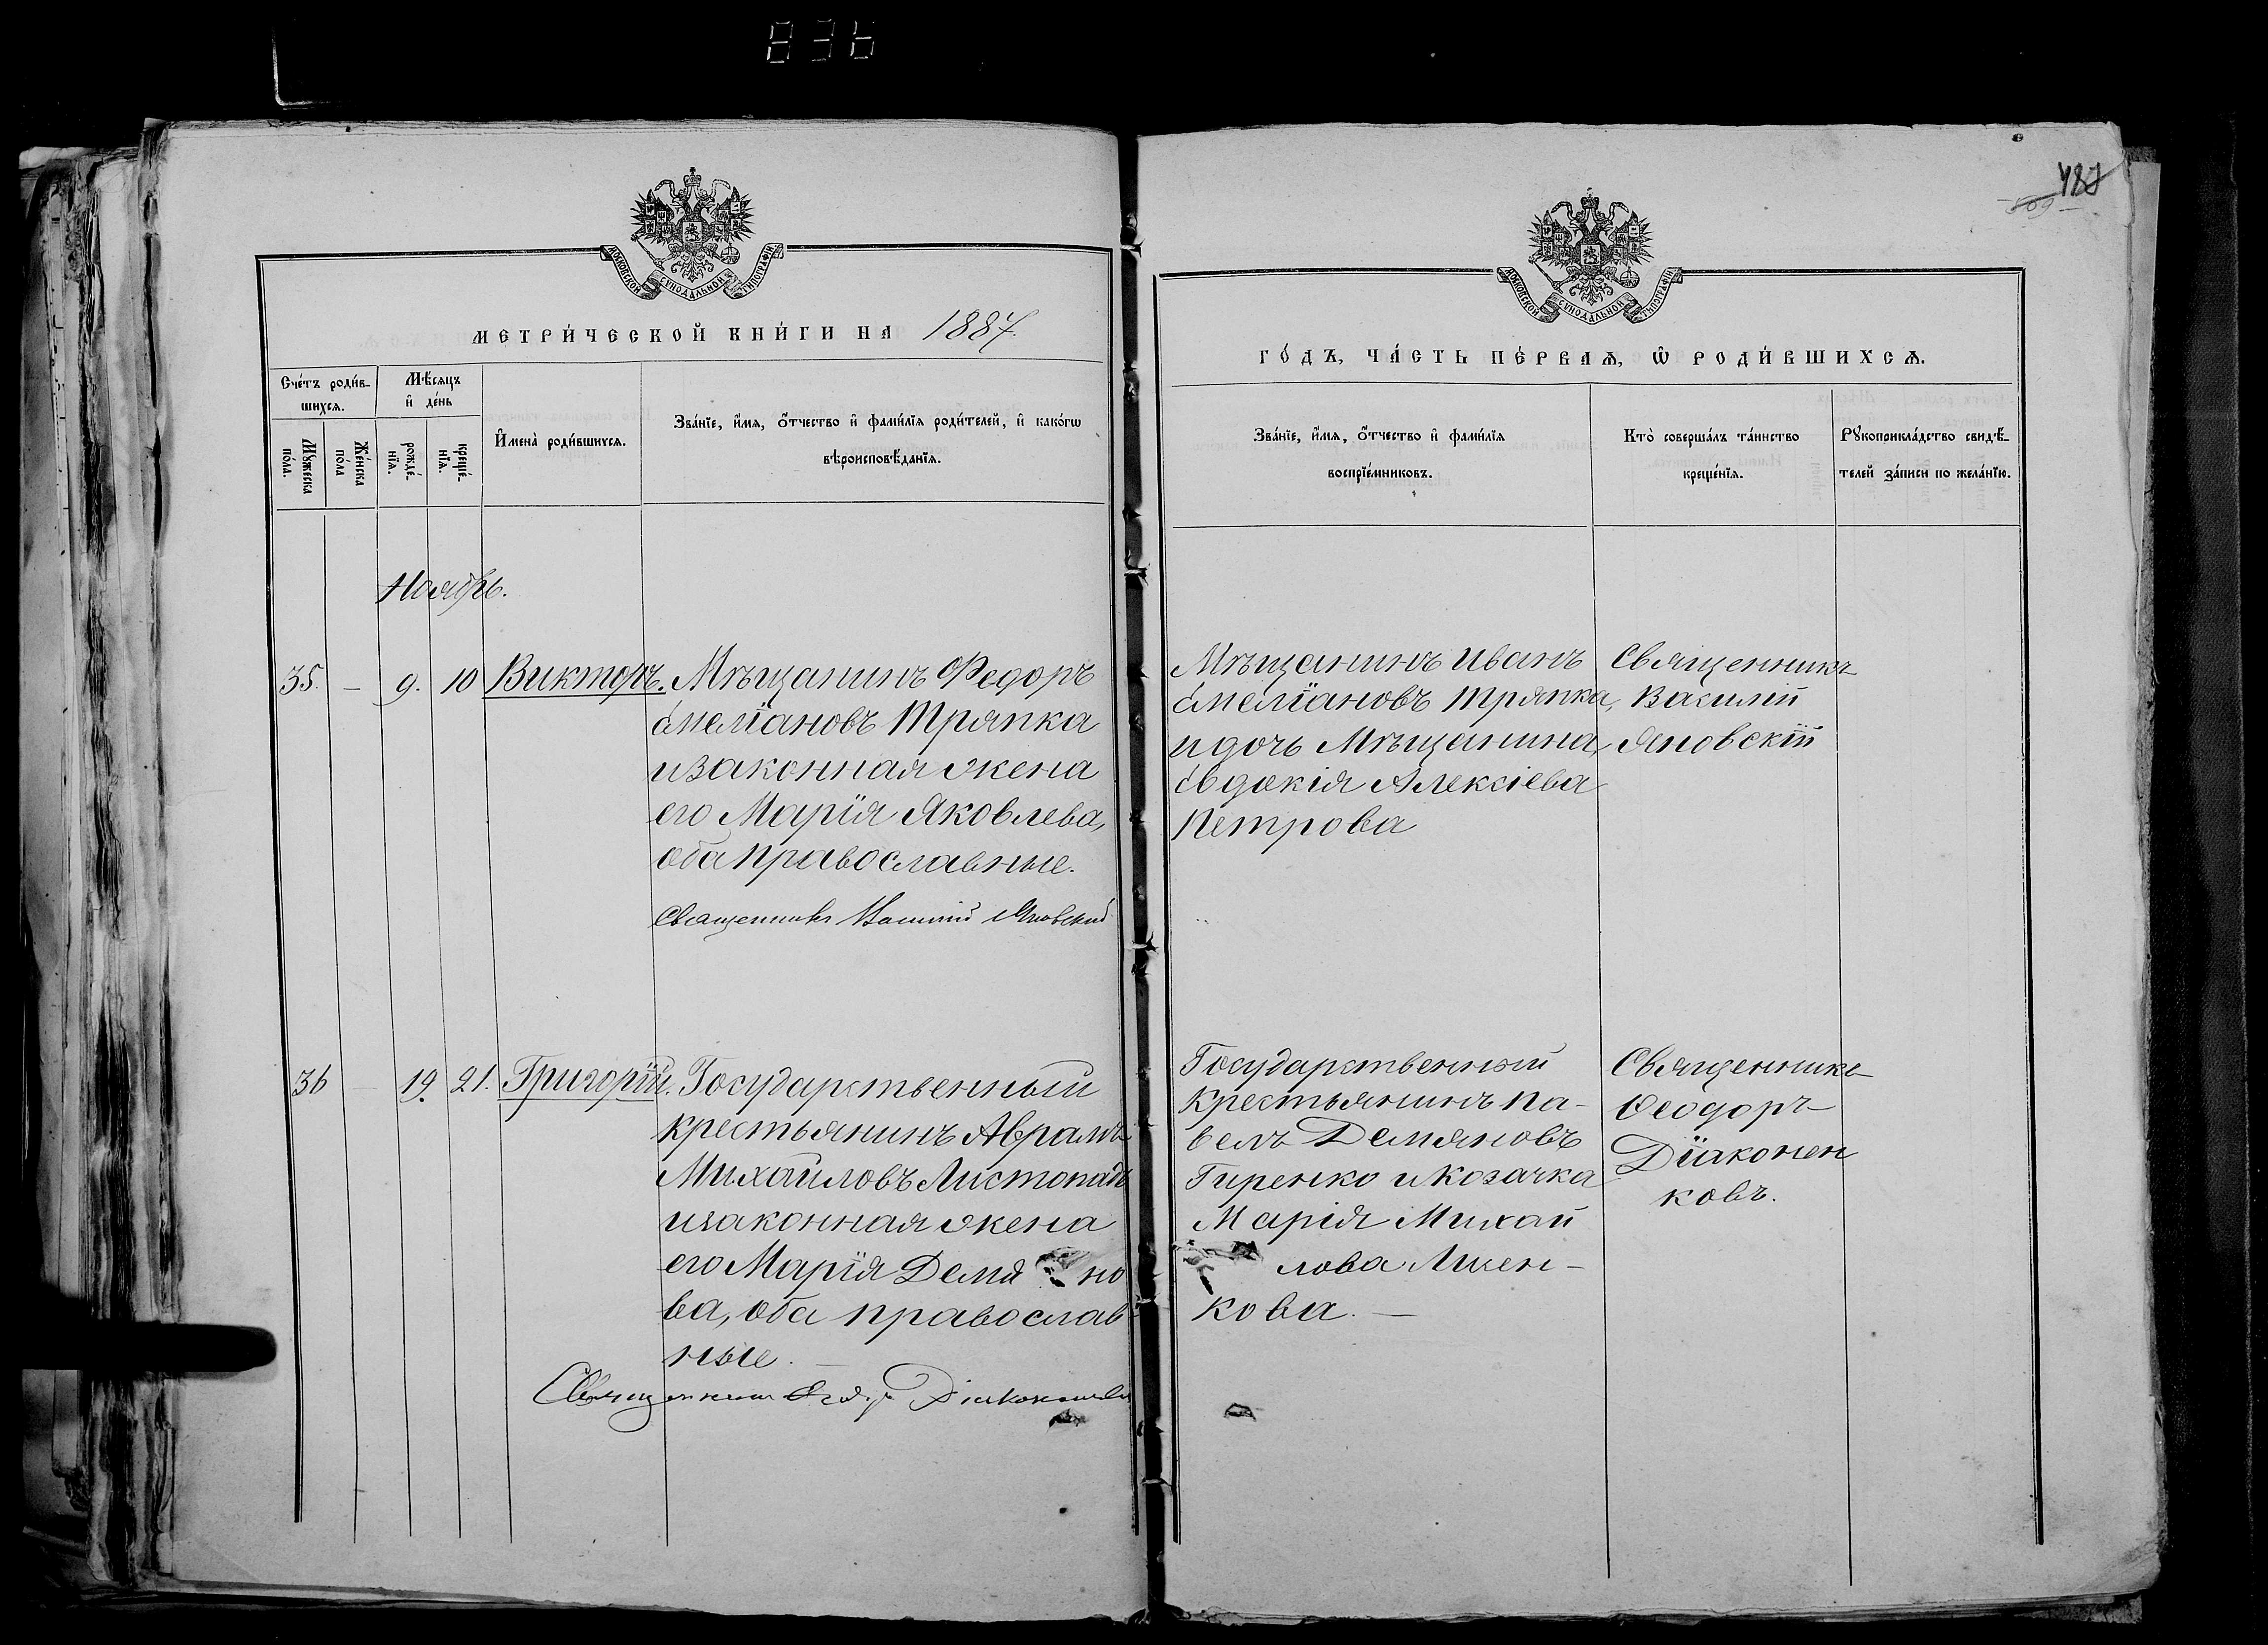 836
487
МОСКОВСКОЙ СѴНОДАЛЬНОЙ ТИПОГРАФІИ
МЕТРИ́ЧЕСКОЙ КНИ́ГИ НА 1887.
Сче́тъ роди́в-
шихсѧ.
Мѣ́сѧцъ
и҆ де́нь
Мꙋ́жеска
по́ла.
Же́нска
по́ла
рожде́-
нїѧ.
креще́-
нїѧ.
И҆мена̀ роди́вшихсѧ.
Зва́нїе, и҆́мѧ, ѻ҆́тчество и҆ фами́лїѧ роди́телей, и҆ како́гѡ
вѣроисповѣ́данїѧ.
Ноябрь.
35. – 9. 10 Викторъ. Мѣщанинъ Федоръ
Емеліановъ Тряпка
и законная жена
его Марія Яковлева,
оба православные.
Священникъ Василій Яновскій
36 – 19. 21. Григорій. Государственный
крестьянинъ Аврамъ
Михайловъ Листопадъ
и законная жена
его Марія Демяно
ва, оба православ
ные. –
Священникъ Ѳеодоръ Діаконенковъ
МОСКОВСКОЙ СѴНОДАЛЬНОЙ ТИПОГРАФІИ
ГО́ДЪ, ЧА́СТЬ ПЕ́РВАѦ, Ѡ҆ РОДИ́ВШИХСѦ.
Зва́нїе, и҆́мѧ, ѻ҆́тчество и҆ фами́лїѧ
воспрїе́мниковъ.
Кто̀ соверша́лъ та́инство
креще́нїѧ.
Рꙋкоприкла́дство свидѣ́-
телей за́писи по жела́нїю.
Мѣщанинъ Иванъ
Емеліановъ Тряпка,
и дочь Мѣщанина,
Евдокія Алексіева
Петрова
Священникъ
Василій
Яновскій
Государственный
крестьянинъ Па-
велъ Демяновъ
Гиренко и Козачка
Марія Михай
лова Лисен-
кова. –
Священникъ
Ѳеодоръ
Діаконен
ковъ.